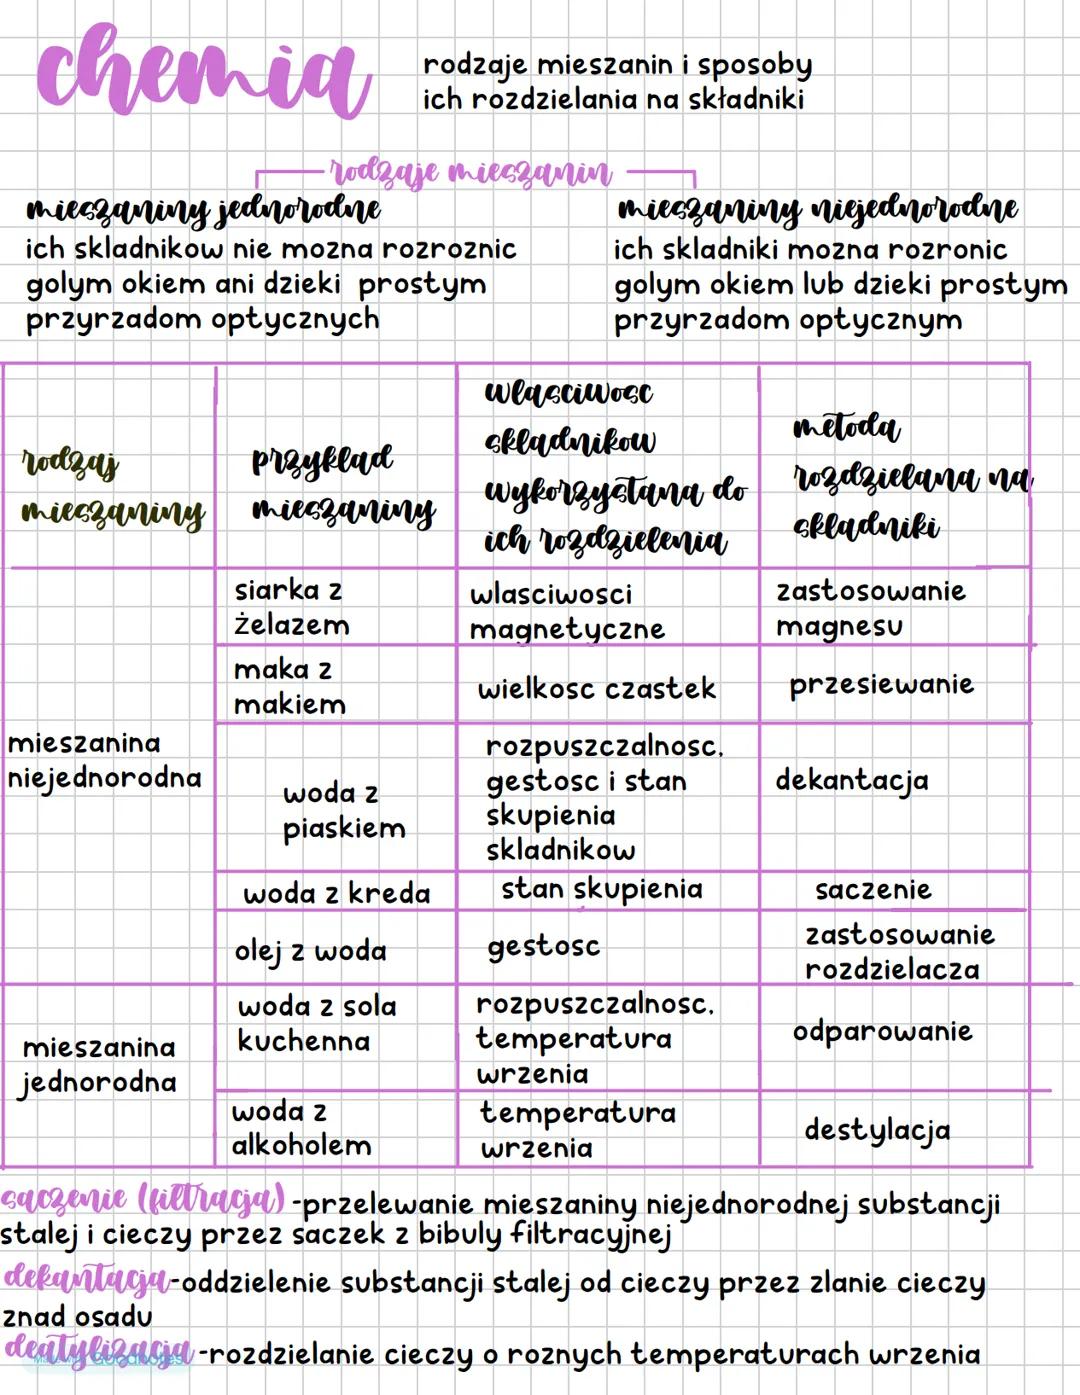 chemia
rodzaje mieszanin i sposoby
ich rozdzielania na składniki
rodzaje mieszanin
mieszaniny jednorodne
ich skladnikow nie mozna rozroznic
golym okiem ani dzieki prostym
przyrzadom optycznych
mieszaniny niejednorodne
ich skladniki mozna rozronic
golym okiem lub dzieki prostym
przyrzadom optycznym
rodzaj
mieszaniny
przyklad
mieszaniny
wlasciwosc
skladnikow
wykorzystana do
ich rozdzielenia
metoda
rozdzielana na
skladniki
mieszanina
niejednorodna
siarka z
żelazem
wlasciwosci
magnetyczne
zastosowanie
magnesu
maka z
makiem
wielkosc czastek
przesiewanie
woda z
piaskiem
rozpuszczalnosc,
gestosc i stan
skupienia
skladnikow
dekantacja
woda z kreda
stan skupienia
saczenie
olej z woda
gestosc
zastosowanie
rozdzielacza
mieszanina
jednorodna
woda z sola
kuchenna
rozpuszczalnosc,
temperatura
wrzenia
odparowanie
woda z
alkoholem
temperatura
wrzenia
destylacja
saczenie (filtracja) -przelewanie mieszaniny niejednorodnej substancji
stalej i cieczy przez saczek z bibuly filtracyjnej
dekantacja-oddzielenie substancji stalej od cieczy przez zlanie cieczy
znad osadu
deatylizacja-rozdzielanie cieczy o roznych temperaturach wrzenia
Made with Goodnotes